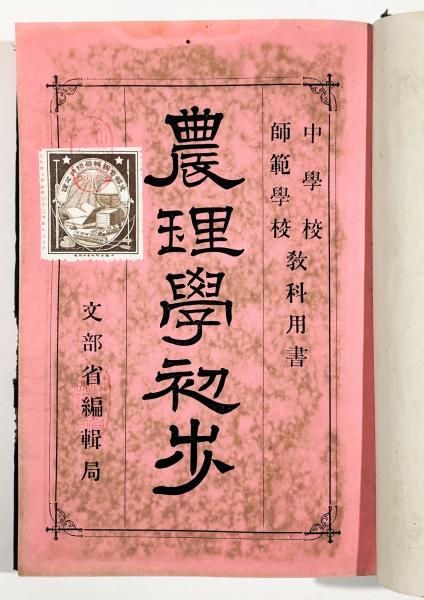 中學校
師範學校
敎科用書
農理學初步
文部省編輯局